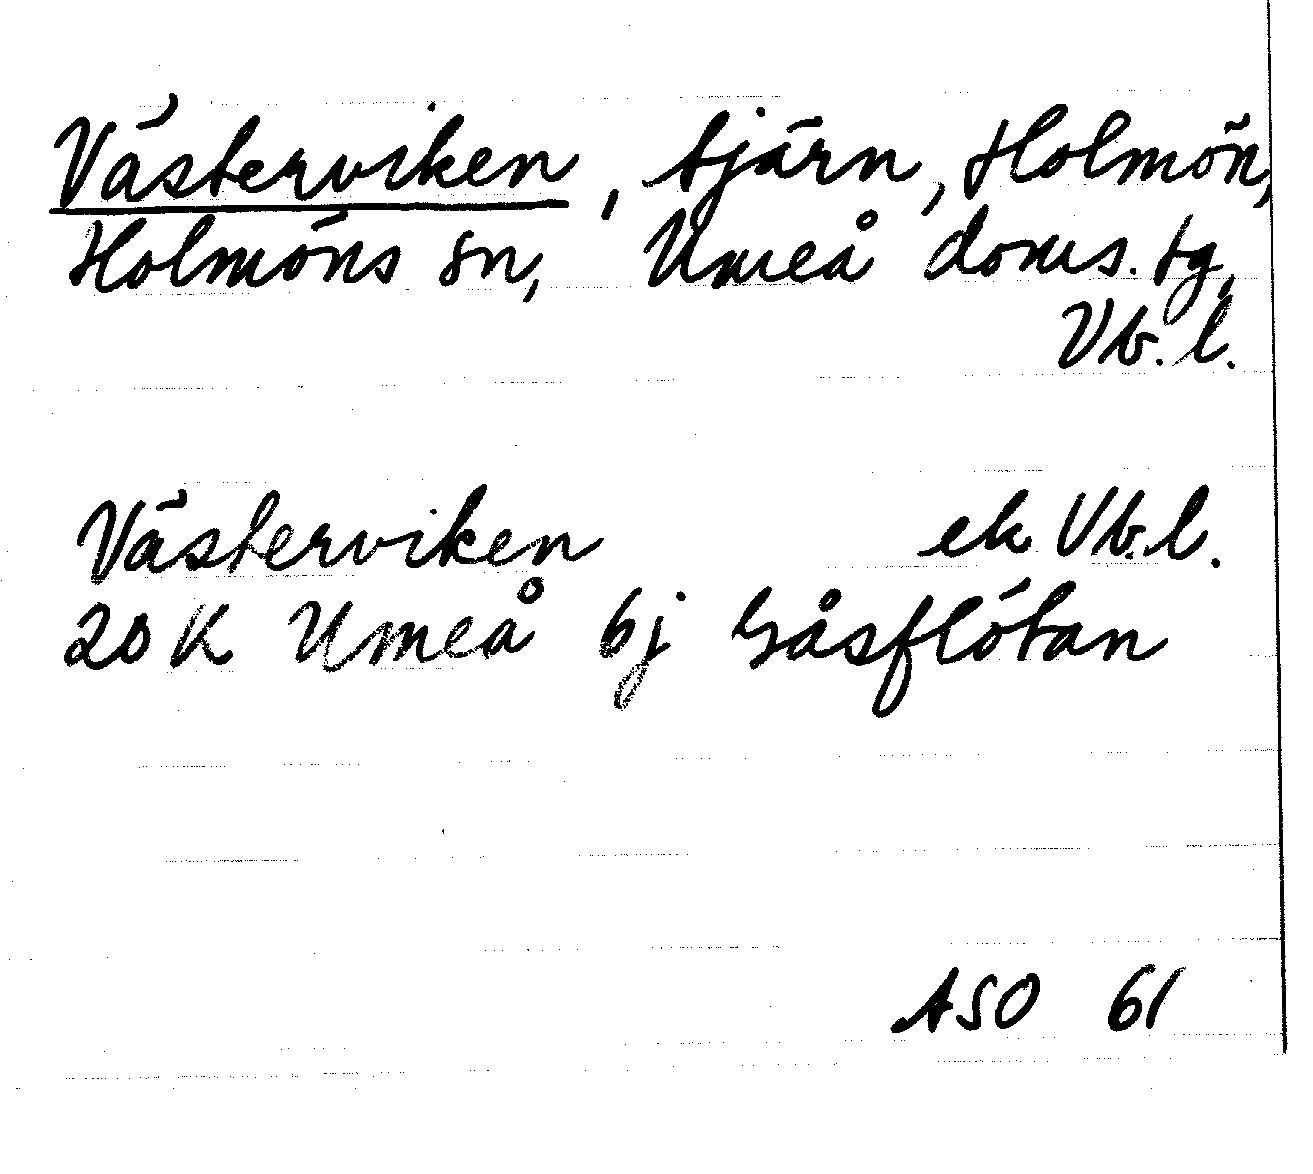 Västerviken, tjärn, Holmön,
Holmöns sn, Umeå doms. tg,
Vb. l.
Västerviken ek Vb. l.
20 K Umeå 6j Gåsflötan
ASO 61